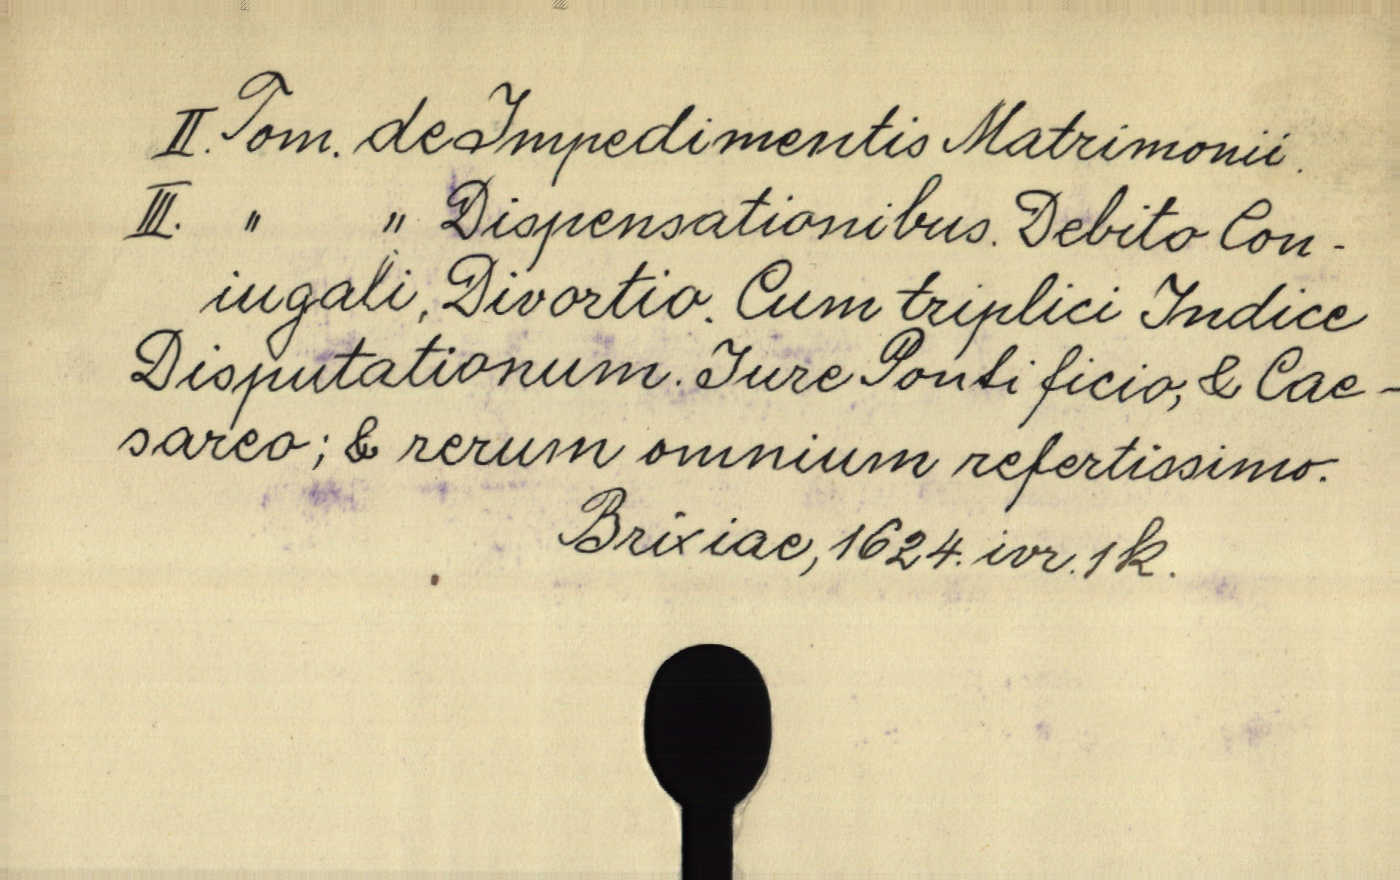 II. Tom. de Impedimentis Matrimonii.
III. " " Dispensationibus. Debito Con-
iugali, Divortio. Cum triplici Indice
Disputationum. Iure Pontificio, & Cae-
sareo; & rerum omnium refertissimo.
Brixiae, 1624. ivr. 1 k.